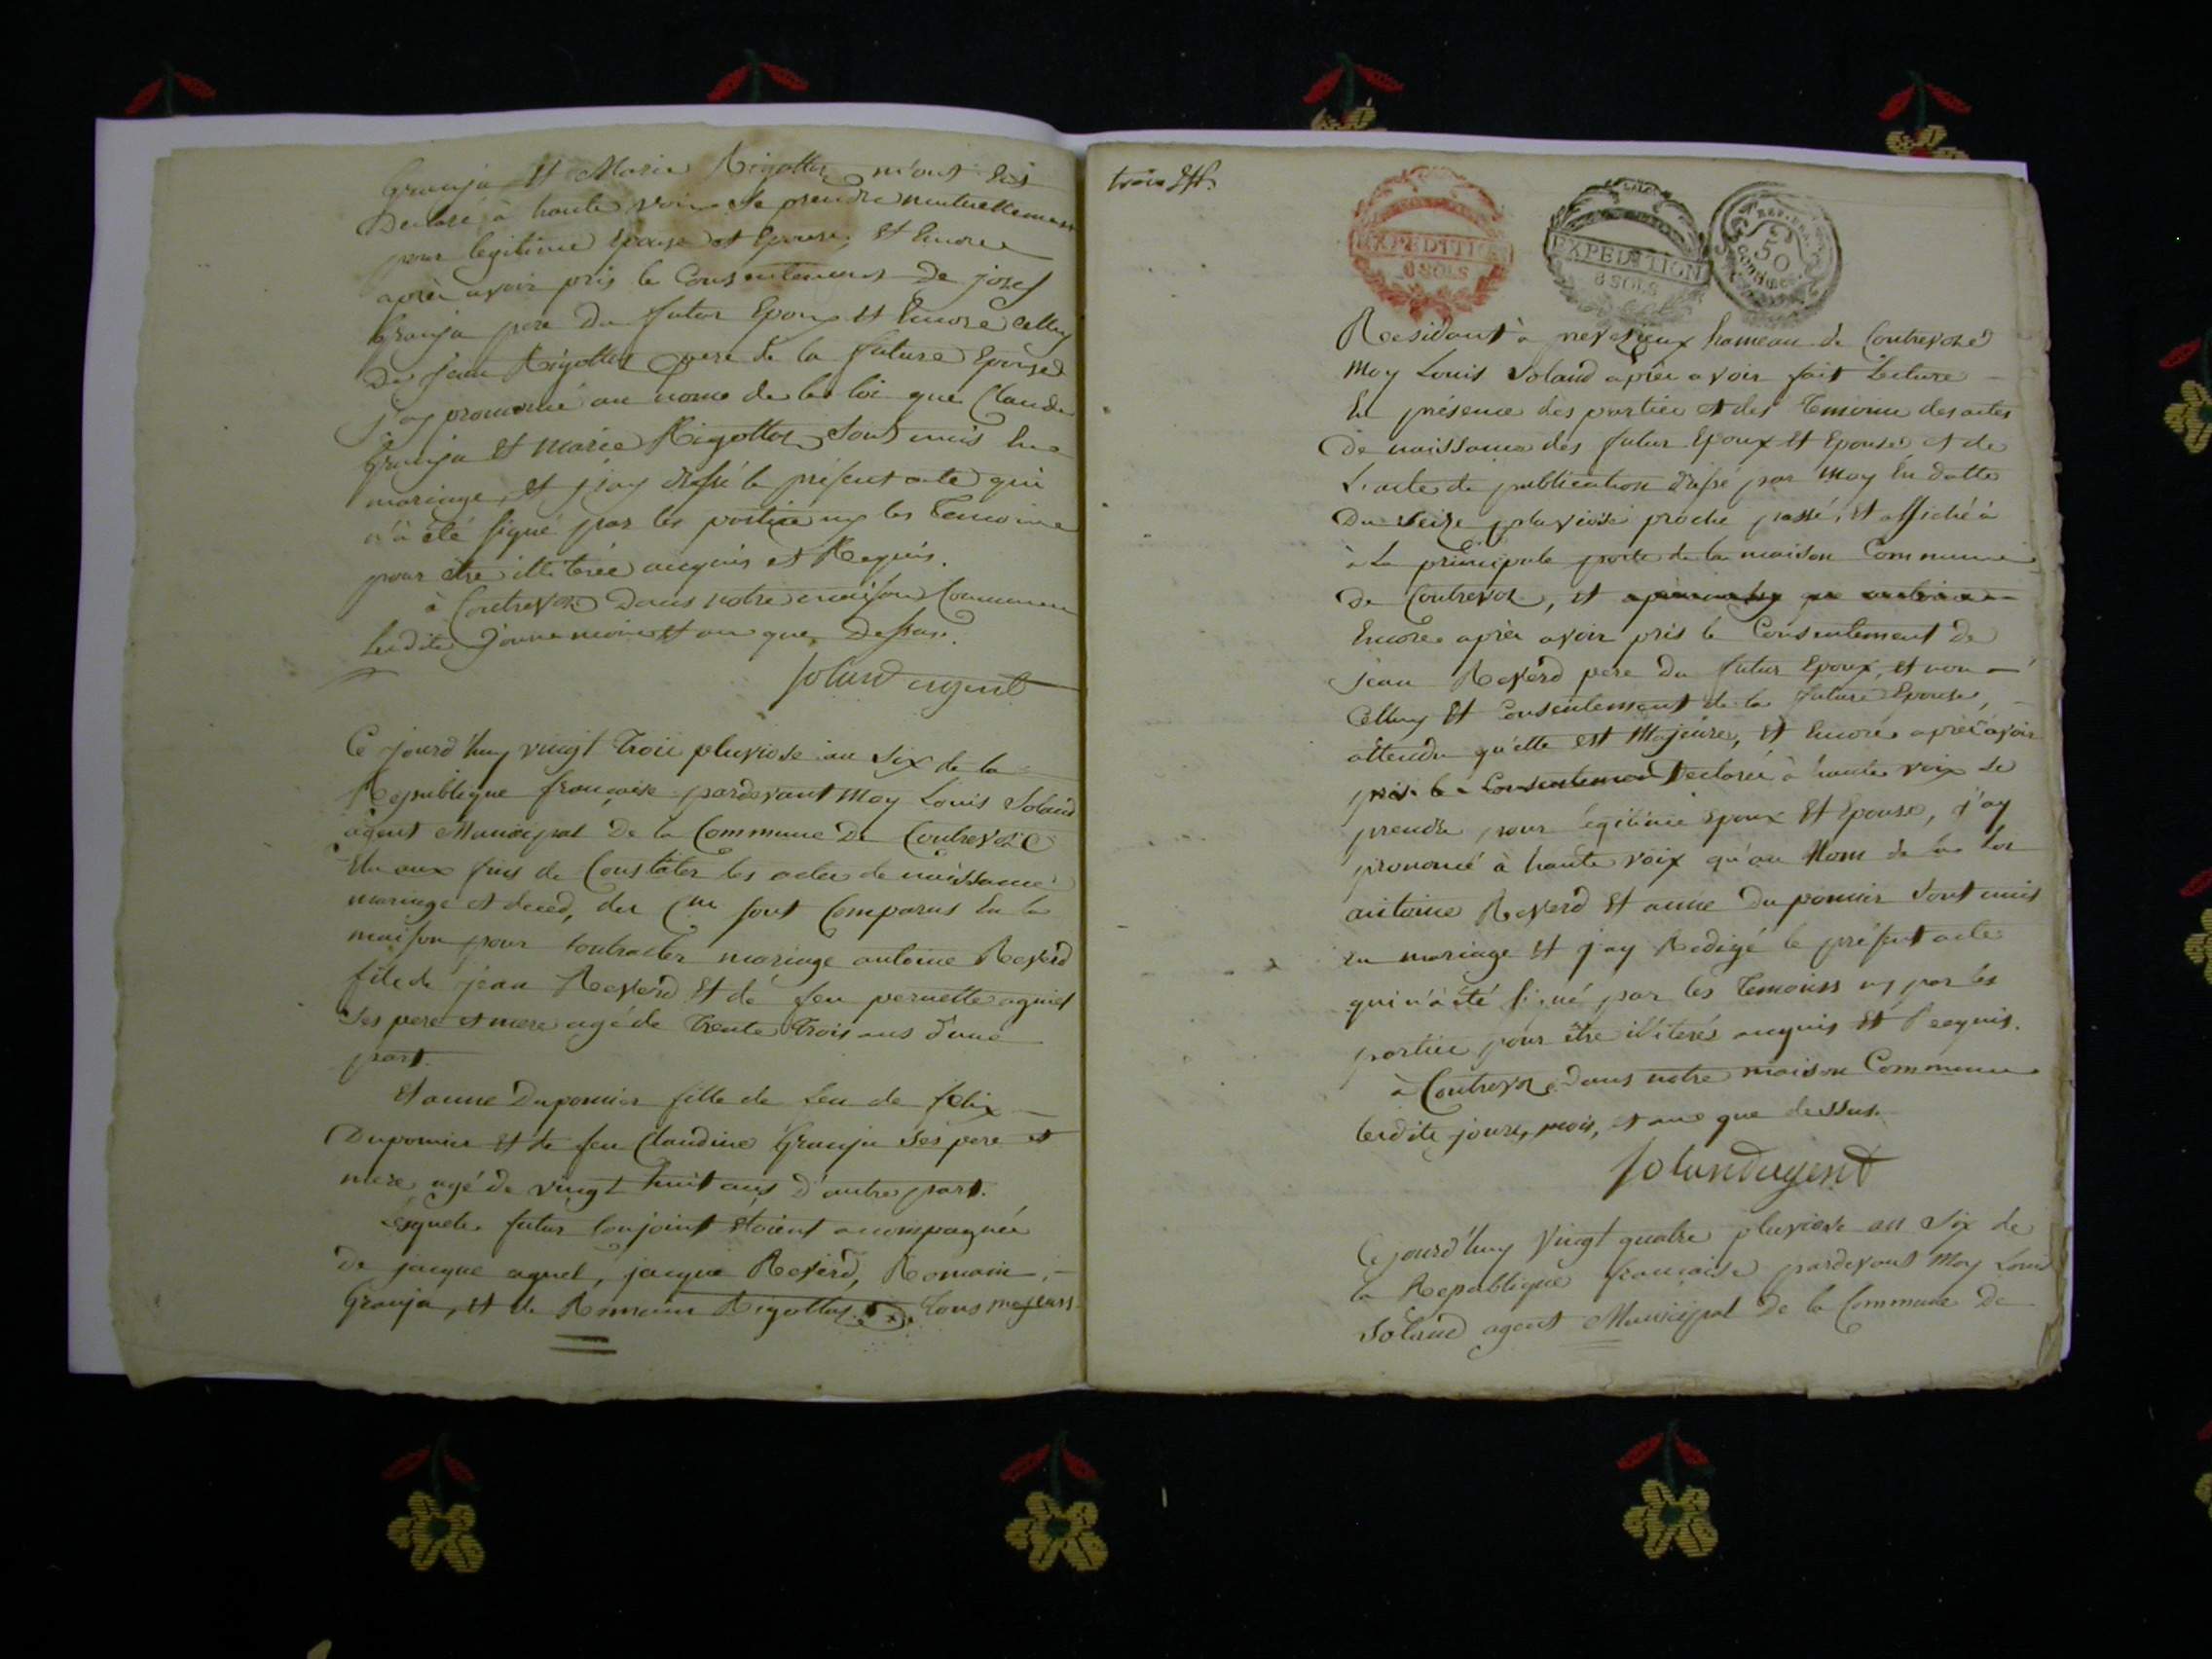 Granja et Marie Rigottier m'ont
Declaré à haute voix se prendre mutuellement
pour legitime Epouxe et Epouse, et Encore
après avoir pris le Consentement de josef
Granja pere du futur Epoux et Encore Celluy
De jean Rigottier pere de la future Epouse
j'ay prononcé au nome de la loi que Claude
Granja et marie Rigottier sont unis En
mariage, et j'ay dressé le présent acte qui
n'à été signé par les partie ny les Temoins
pour être illiterée enquis et Requis.
à Contrevoz Dans notre maison Commune
lesdits Jour mois et an que Dessus.
Soland agent
Ce jourd'huy vingt Trois pluviose an Six de la
Republique francaise pardevant Moy Louis Soland
agent Municipal De la Commune De Contrevoz
Elu aux fins de Constater les actes de naissance
mariage et deced, des Cns sont Comparus En la
maison pour Contracter mariage antoine Reverd
fils de jean Reverd et de feu pernette aguiet
Ses pere et mere agé de Trente Trois ans d'une
part.
Et anne Duponier fille de feu de felix
Duponier et de feu Claudine Granja Ses pere et
mere agé de vingt huit ans d'autre part.
Lesquels futur Conjoint étoient accompagnée
De jacque aguel, jacque Reverd, Romain
Granja, et de Romain Rigottier Tous majeurs
trois
EXPEDITION
6 SOLS
EXPEDITION
6 SOLS
50
Residant à hameau de Contrevoz
Moy Louis Soland après avoir fait Lecture
En présence des partie et des Temoins des actes
De naissance des futur Epoux et Epouse et de
L'acte de publication dressé par Moy En datte
Du Seize pluviose proche passé, et affiché à
à La principale porte de la maison Commune
De Contrevoz, et
Encore après avoir pris le Consentement de
jean Reverd pere du futur Epoux, et non
Celluy et Consentement de la future Epouse,
attendu qu'elle est Majeure, et Encore après avoir
pris le Consentement Declaré à haute voix se
prendre pour legitime Epoux et Epouse, j'ay
prononcé à haute voix qu'au Nom de la Loi
antoine Reverd et anne Duponier sont unis
En mariage et j'ay Redigé le présent acte
qui n'à été signé par les Temoins ny par les
partie pour être illiterés enquis et Requis.
à Contrevoz Dans notre maison Commune
lesdits jours, mois, et an que dessus.
Soland agent
Ce jourd'huy Vingt quatre pluviose an Six de
la Republique francaise pardevant Moy Louis
Soland agent Municipal De la Commune De